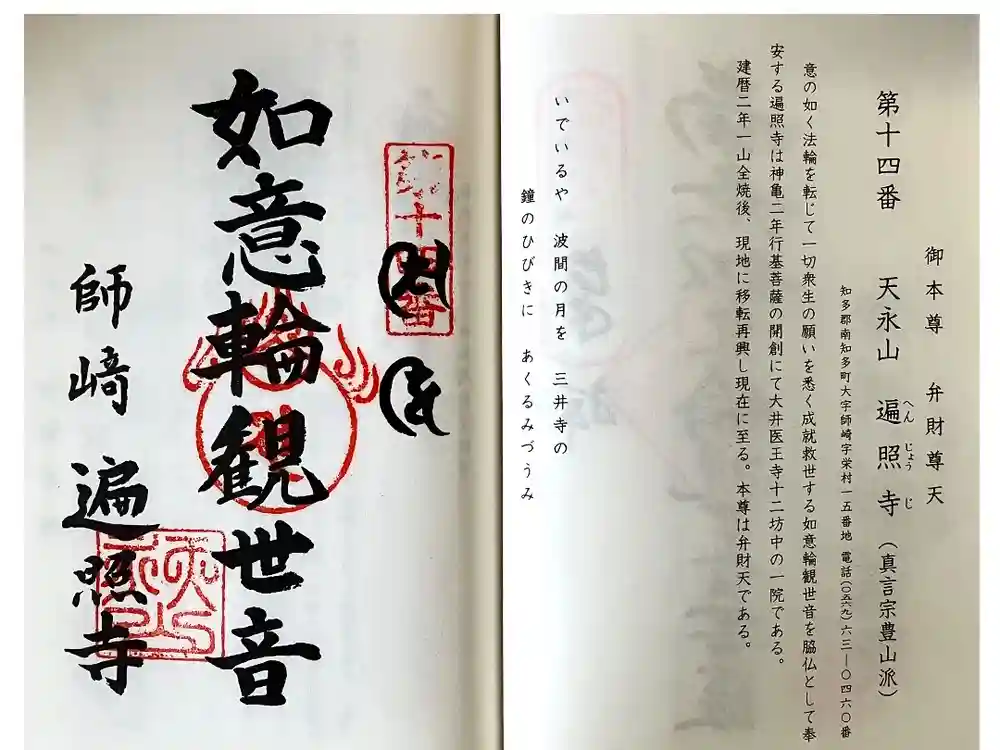 御本尊 弁財尊天
第十四番 天永山 遍照寺（真言宗豊山派）
へんじょうじ
知多郡南知多町大字師崎字栄村一五番地 電話（〇五六九）六三―〇四六〇番
意の如く法輪を転じて一切衆生の願いを悉く成就救世する如意輪観世音を脇仏として奉
安する遍照寺は神亀二年行基菩薩の開創にて大井医王寺十二坊中の一院である。
建暦二年一山全焼後、現地に移転再興し現在に至る。本尊は弁財天である。
いでいるや 波間の月を 三井寺の
鐘のひびきに あくるみづうみ
第十四番
如意輪観世音
師崎 遍照寺